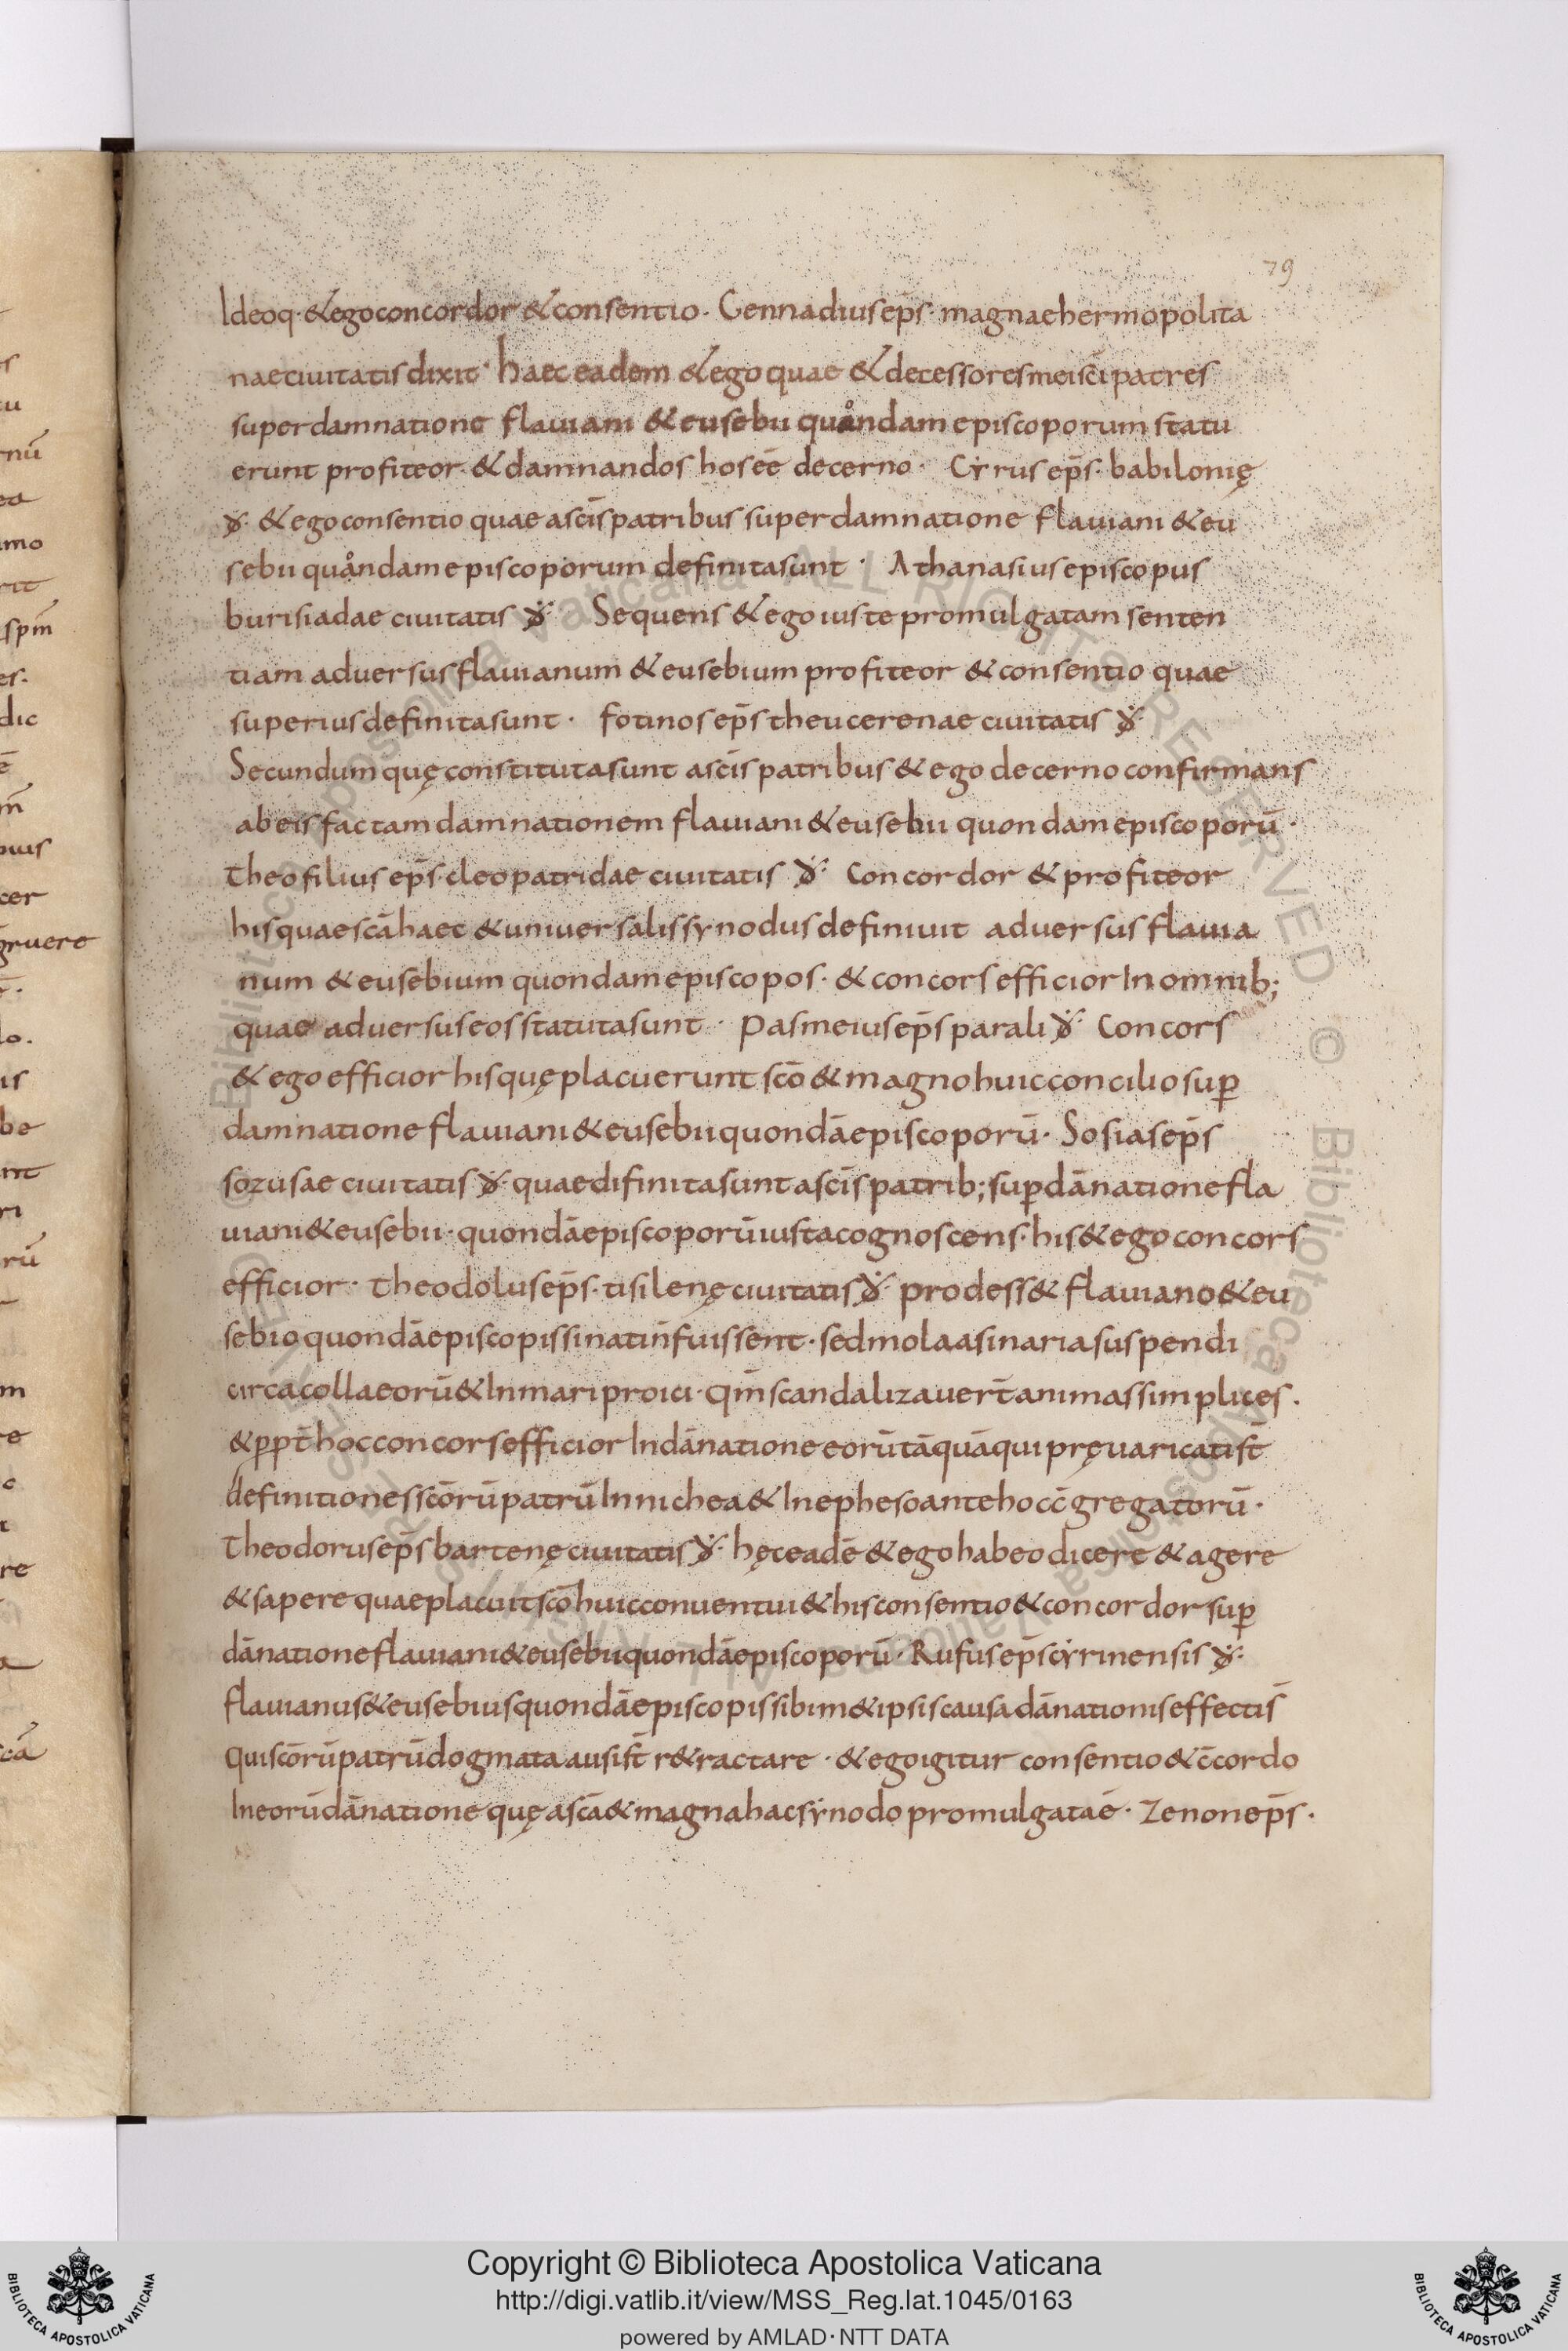 79
Ideoq· & ego concordor & consentio· Gennadius ep̄s· magnae hermopolita
nae ciuitatis dixit· haec eadem & ego quae & decessores mei sc̄i patres
super damnatione flauiani & eusebii quandam episcoporum statu
erunt profiteor· & damnandos hos eē decerno· Cẏrus ep̄s· babilonię
ꝺ̄· & ego consentio quae a sc̄is patribus super damnatione flauiani & eu
sebii quandam episcoporum definita sunt· Athanasius episcopus
burisiadae ciuitatis ꝺ̄· Sequens & ego iuste promulgatam senten
tiam aduersus flauianum & eusebium profiteor & consentio quae
superius definita sunt· fotinos ep̄s theucerenae ciuitatis ꝺ̄·
Secundum quę constituta sunt a sc̄is patribus & ego decerno confirmans
ab eis factam damnationem flauiani & eusebii quondam episcoporū·
Theofilius ep̄s· cleopatridae ciuitatis ꝺ̄· Concordor & profiteor
his quae sc̄a haec & uniuersalis synodus definiuit aduersus flauia
num & eusebium quondam episcopos· & concors efficior In omnib;
quae aduersus eos statuta sunt· Pasmeius ep̄s parali ꝺ̄· Concors
& ego efficior his quę placuerunt sc̄o & magno huic concilio suꝑ
damnatione flauiani & eusebii quondā episcoporū· Sosias ep̄s
sozusae ciuitatis ꝺ̄· quae difinita sunt a sc̄is patrib; suꝑ dānatione fla
uiani & eusebii· quondā episcoporū iusta cognoscens· his & ego concors
efficior· Theodolus ep̄s· tisilenę ciuitatis ꝺ̄· prodess& flauiano & eu
sebio quondā episcopis si nati n̄ fuissent· sed mola asinaria suspendi
circa colla eorū & In mari proici· qm̄ scandalizauer̄t animas simplices·
& ꝓpt̄ hoc concors efficior In dānatione eorū tāquā qui pręuaricati st̄
definitiones sc̄orū patrū In nichea & In epheso ante hoc c̄gregatorū·
Theodorus ep̄s bartenę ciuitatis ꝺ̄· hęc eadē & ego habeo dicere & agere
& sapere quae placuit sc̄o huic conuentui & his consentio & concordor suꝑ
dānatione flauiani & eusebii quondā episcoporū· Rufus ep̄s cẏrinensis ꝺ̄·
flauianus & eusebius quondā episcopis sibim& ipsis causa dānationis effecti s̄
Qui sc̄orū patrū dogmata ausi st̄ r&ractare· & ego igitur consentio & c̄cordo
In eorū dānatione quę a sc̄a & magna hac sẏnodo promulgata ē· Zenon ep̄s·
Copyright © Biblioteca Apostolica Vaticana
http://digi.vatlib.it/view/MSS_Reg.lat.1045/0163
powered by AMLAD·NTT DATA